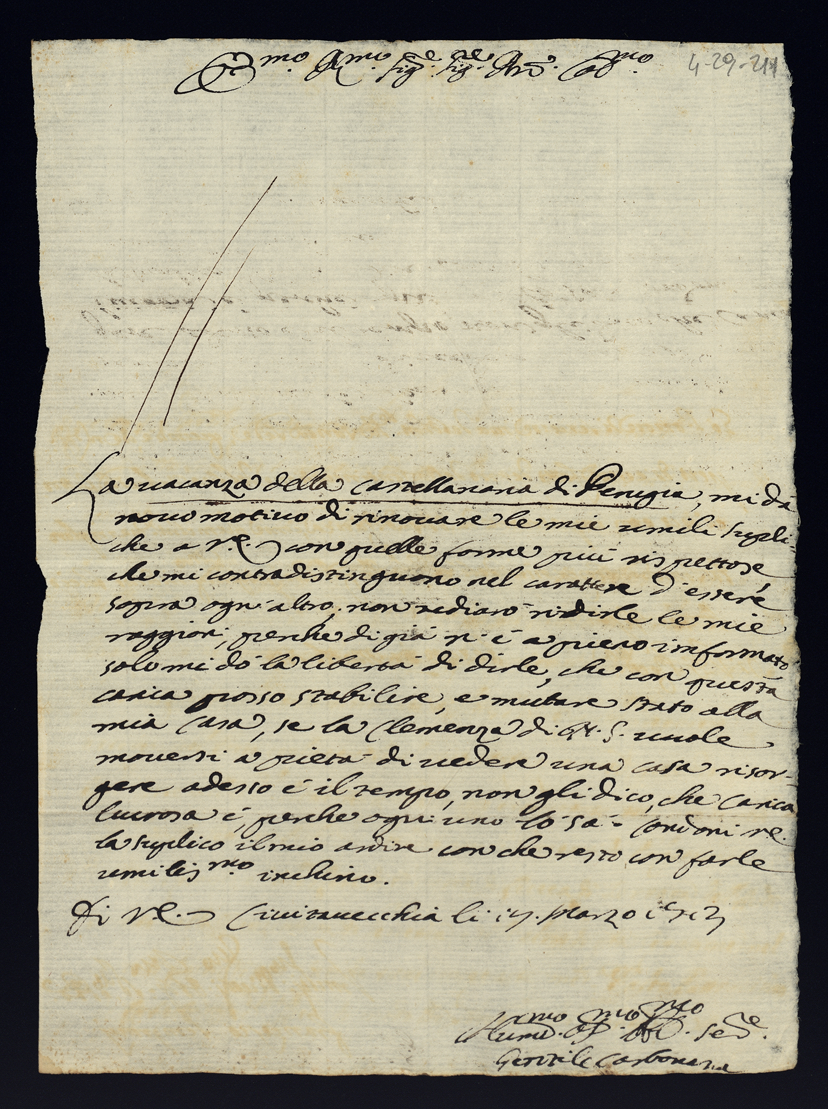 Em.mo R.mo Sig.re Sig.re P.ron Col.mo
4-29-211
La uacanza della castellanaria di Perugia, mi dà
nouo motiuo di rinouare le mie umili supli-
che a V.E. con quelle forme più rispettose
che mi contradistinguono nel carattere d'essere
sopra ogn'altro, non rediarò ridirle le mie
raggioni, perche di già n'è a pieno informato
solo mi dò la libertà di dirle, che con questa
carica posso stabilire, e mutare stato alla
mia casa, se la clemenza di N.S. uuole
mouersi a pietà di uedere una casa risor-
gere adesso è il tempo, non gli dico, che carica
lucrosa è, perche ogni uno lo sà. Condoni V.E.
la suplico il mio ardire con che resto con farle
umilis.mo inchino.
Di V.E. Ciuitauecchia li 17. Marzo
Hum.mo
Gentile Carbonara